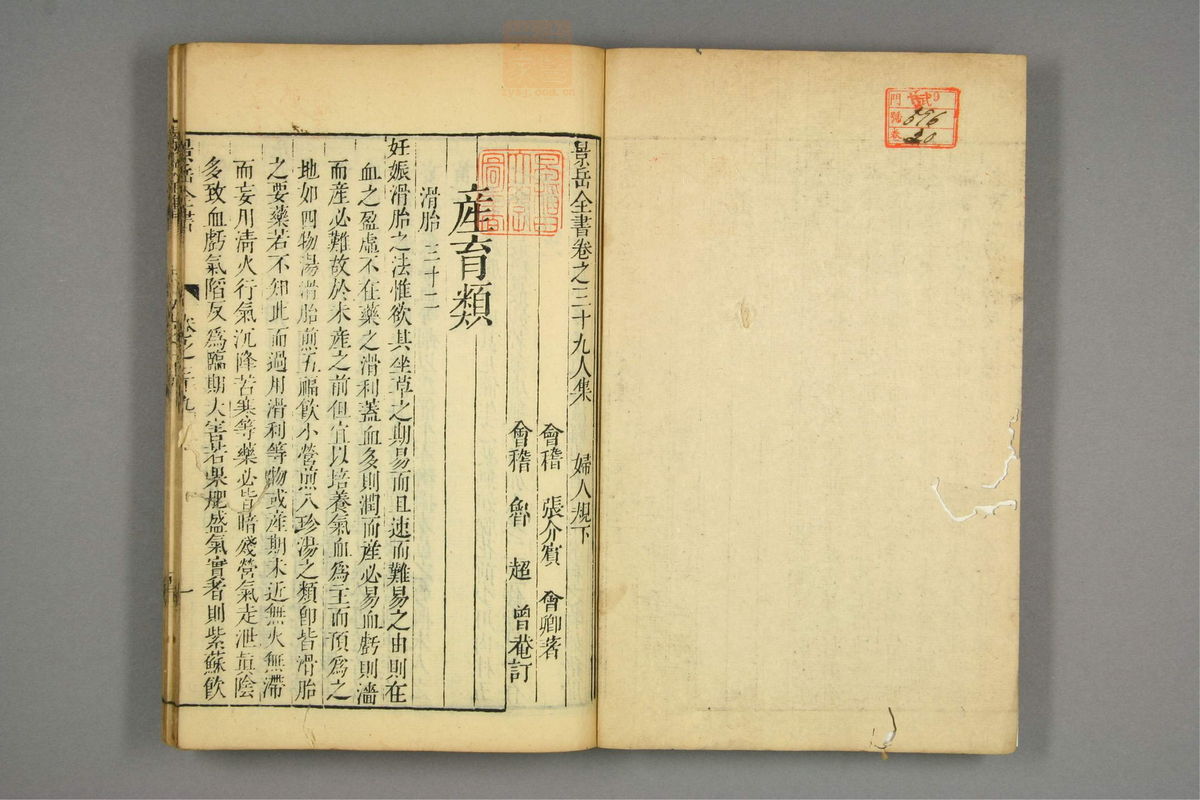 景岳全書卷之三十九人集 婦人規下
會稽 張介賓 會卿著
會稽 魯 超 曾菴訂
產育類
滑胎 三十二
妊娠滑胎之法惟欲其坐草之期易而且速而難易之由則在
血之盈虛不在藥之滑利蓋血多則潤而產必易血虧則濇
而產必難故於未產之前但宜以培養氣血為主而預為之
地如四物湯滑胎煎五福飲小營煎八珍湯之類即皆滑胎
之要藥若不知此而過用滑利等物或產期未近無火無滯
而妄用清火行氣沉降苦寒等藥必皆暗殘營氣走泄眞陰
多致血虧氣陷反為臨期大害若果肥盛氣實者則紫蘇飲
景岳全書 卷之三十九
門 貳9
號 696
卷 20
zysj.com.cn